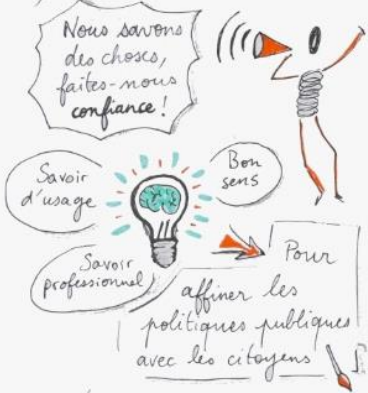 Nous savons
des choses,
faites-nous
confiance !
Savoir
d'usage
Bon
sens
Savoir
professionnel
Pour
affiner les
politiques publiques
avec les citoyens